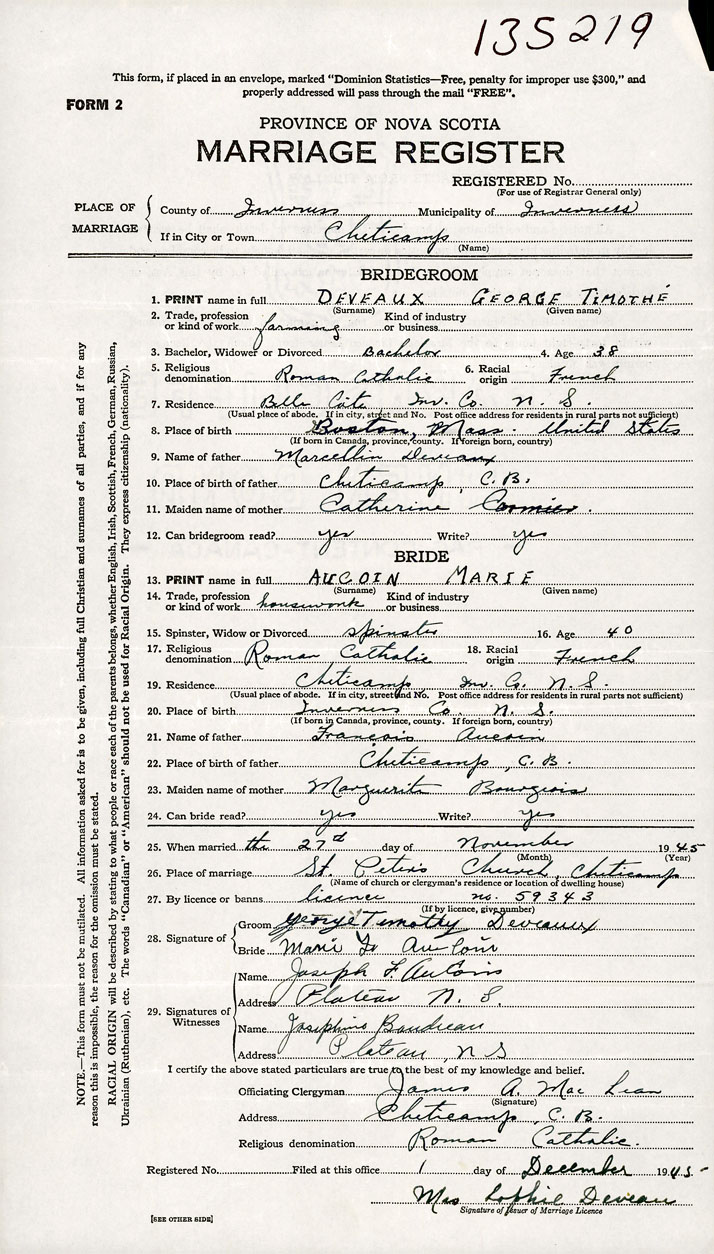 135219
This form, if placed in an envelope, marked "Dominion Statistics—Free, penalty for improper use $300," and
properly addressed will pass through the mail "FREE".
FORM 2
PROVINCE OF NOVA SCOTIA
MARRIAGE REGISTER
REGISTERED No.
(For use of Registrar General only)
PLACE OF MARRIAGE
County of Inverness Municipality of Inverness
If in City or Town Cheticamp
(Name)
BRIDEGROOM
1. PRINT name in full DEVEAUX GEORGE TIMOTHÉ
(Surname) (Given name)
2. Trade, profession or kind of work farming Kind of industry or business
3. Bachelor, Widower or Divorced Bachelor 4. Age 38
5. Religious denomination Roman Catholic 6. Racial origin French
7. Residence Belle Cote Inv. Co. N. S.
(Usual place of abode. If in city, street and No. Post office address for residents in rural parts not sufficient)
8. Place of birth Boston, Mass. United States
(If born in Canada, province, county. If foreign born, country)
9. Name of father Marcellin Deveaux
10. Place of birth of father Cheticamp, C. B.
11. Maiden name of mother Catherine Cormier.
12. Can bridegroom read? yes Write? yes
BRIDE
13. PRINT name in full AUCOIN MARIE
(Surname) (Given name)
14. Trade, profession or kind of work housework Kind of industry or business
15. Spinster, Widow or Divorced spinster 16. Age 40
17. Religious denomination Roman Catholic 18. Racial origin French
19. Residence Cheticamp, Inv. Co. N. S.
(Usual place of abode. If in city, street and No. Post office address for residents in rural parts not sufficient)
20. Place of birth Inverness Co. N. S.
(If born in Canada, province, county. If foreign born, country)
21. Name of father Francois Aucoin
22. Place of birth of father Cheticamp, C. B.
23. Maiden name of mother Marguerite Bourgeois
24. Can bride read? yes Write? yes
25. When married the 27th day of November 1945
(Month) (Year)
26. Place of marriage St. Peter's Church, Cheticamp
(Name of church or clergyman's residence or location of dwelling house)
27. By licence or banns licence no. 59343
(If by licence, give number)
28. Signature of
Groom George Timothy Deveaux
Bride Marie Aucoin
29. Signatures of Witnesses
Name Joseph F. AuCoin
Address Plateau N. S.
Name Josephine Boudreau
Address Plateau, N S
I certify the above stated particulars are true to the best of my knowledge and belief.
Officiating Clergyman James A. Mac Lean
(Signature)
Address Cheticamp, C. B.
Religious denomination Roman Catholic.
Registered No. Filed at this office 1 day of December 1945
Mrs Sophie Deveau
Signature of Issuer of Marriage Licence
[SEE OTHER SIDE]
NOTE.—This form must not be mutilated. All information asked for is to be given, including full Christian and surnames of all parties, and if for any
reason this is impossible, the reason for the omission must be stated.
RACIAL ORIGIN will be described by stating to what people or race each of the parents belongs, whether English, Irish, Scottish, French, German, Russian,
Ukrainian (Ruthenian), etc. The words "Canadian" or "American" should not be used for Racial Origin. They express citizenship (nationality).